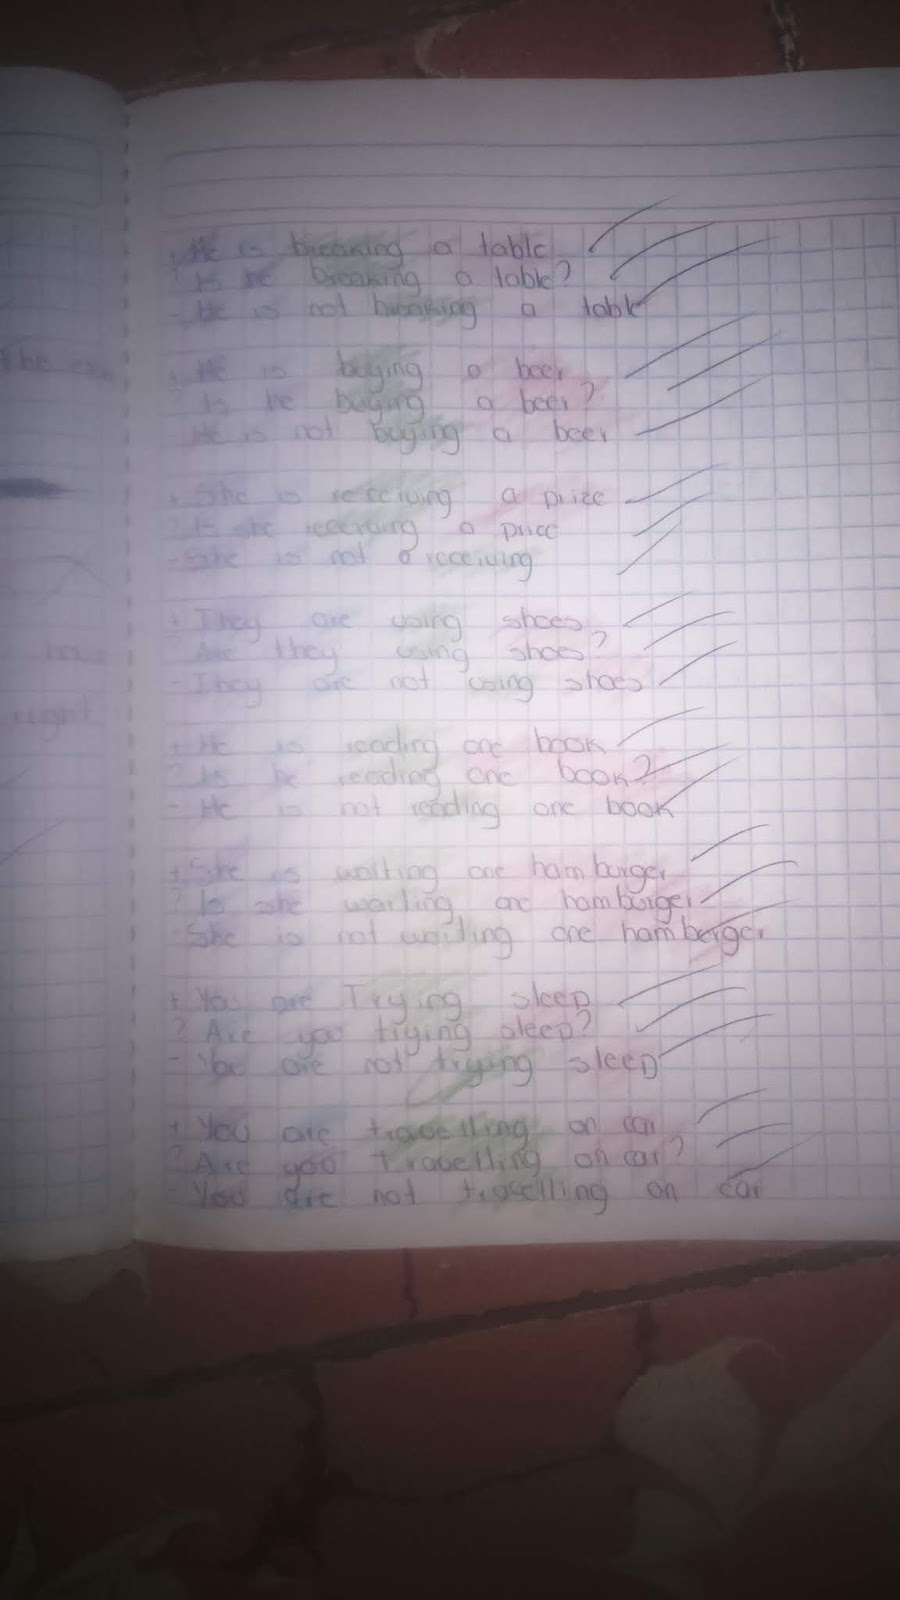 The
+ He is breaking a table
? Is he breaking a table?
He is not breaking a table
+ He is buying a beer
? Is he buying a beer?
He is not buying a beer
+ She is receiving a prize
? Is she receiving a price
- She is not a receiving
+ They are using shoes
Are they using shoes?
- They are not using shoes
+ He is reading one book
? Is he reading one book?
- He is not reading one book
+ She is waiting one hamburger
? Is she waiting one hamburger
She is not waiting one hamberger
+ You are Trying sleep
? Are you trying sleep?
- You are not trying sleep
+ You are travelling on car
? Are you Travelling on car?
- You are not travelling on car